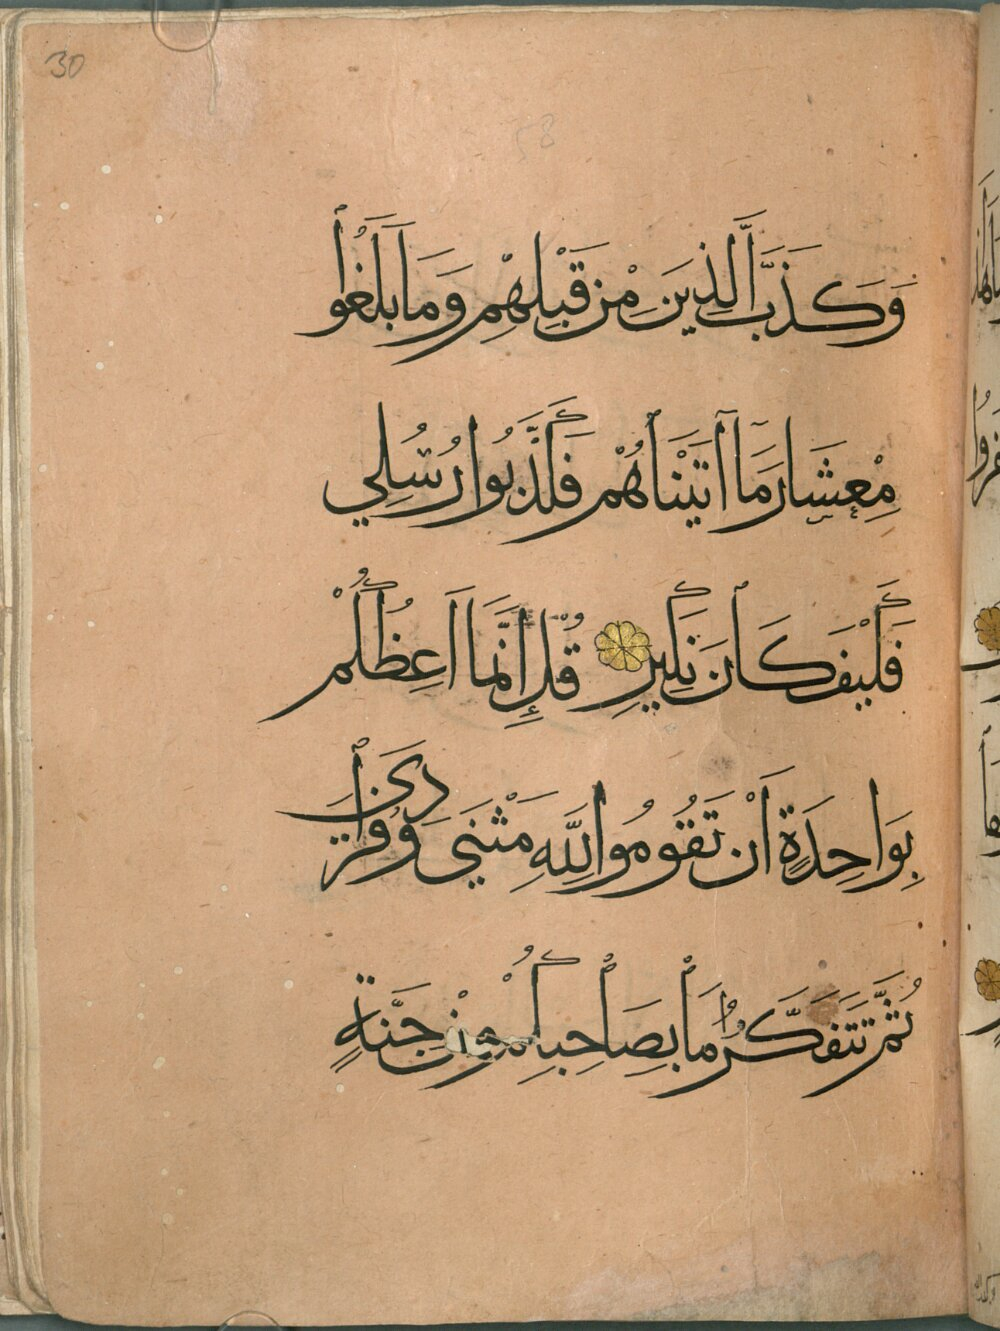 30
58
وَكَذَّبَ الَّذِينَ مِنْ قَبْلِهِمْ وَمَا بَلَغُوا
مِعْشَارَ مَا آتَيْنَاهُمْ فَكَذَّبُوا رُسُلِي
فَكَيْفَ كَانَ نَكِيرِ قُلْ إِنَّمَا أَعِظُكُمْ
بِوَاحِدَةٍ أَنْ تَقُومُوا لِلَّهِ مَثْنَى وَفُرَادَى
ثُمَّ تَتَفَكَّرُوا مَا بِصَاحِبِكُمْ مِنْ جِنَّةٍ